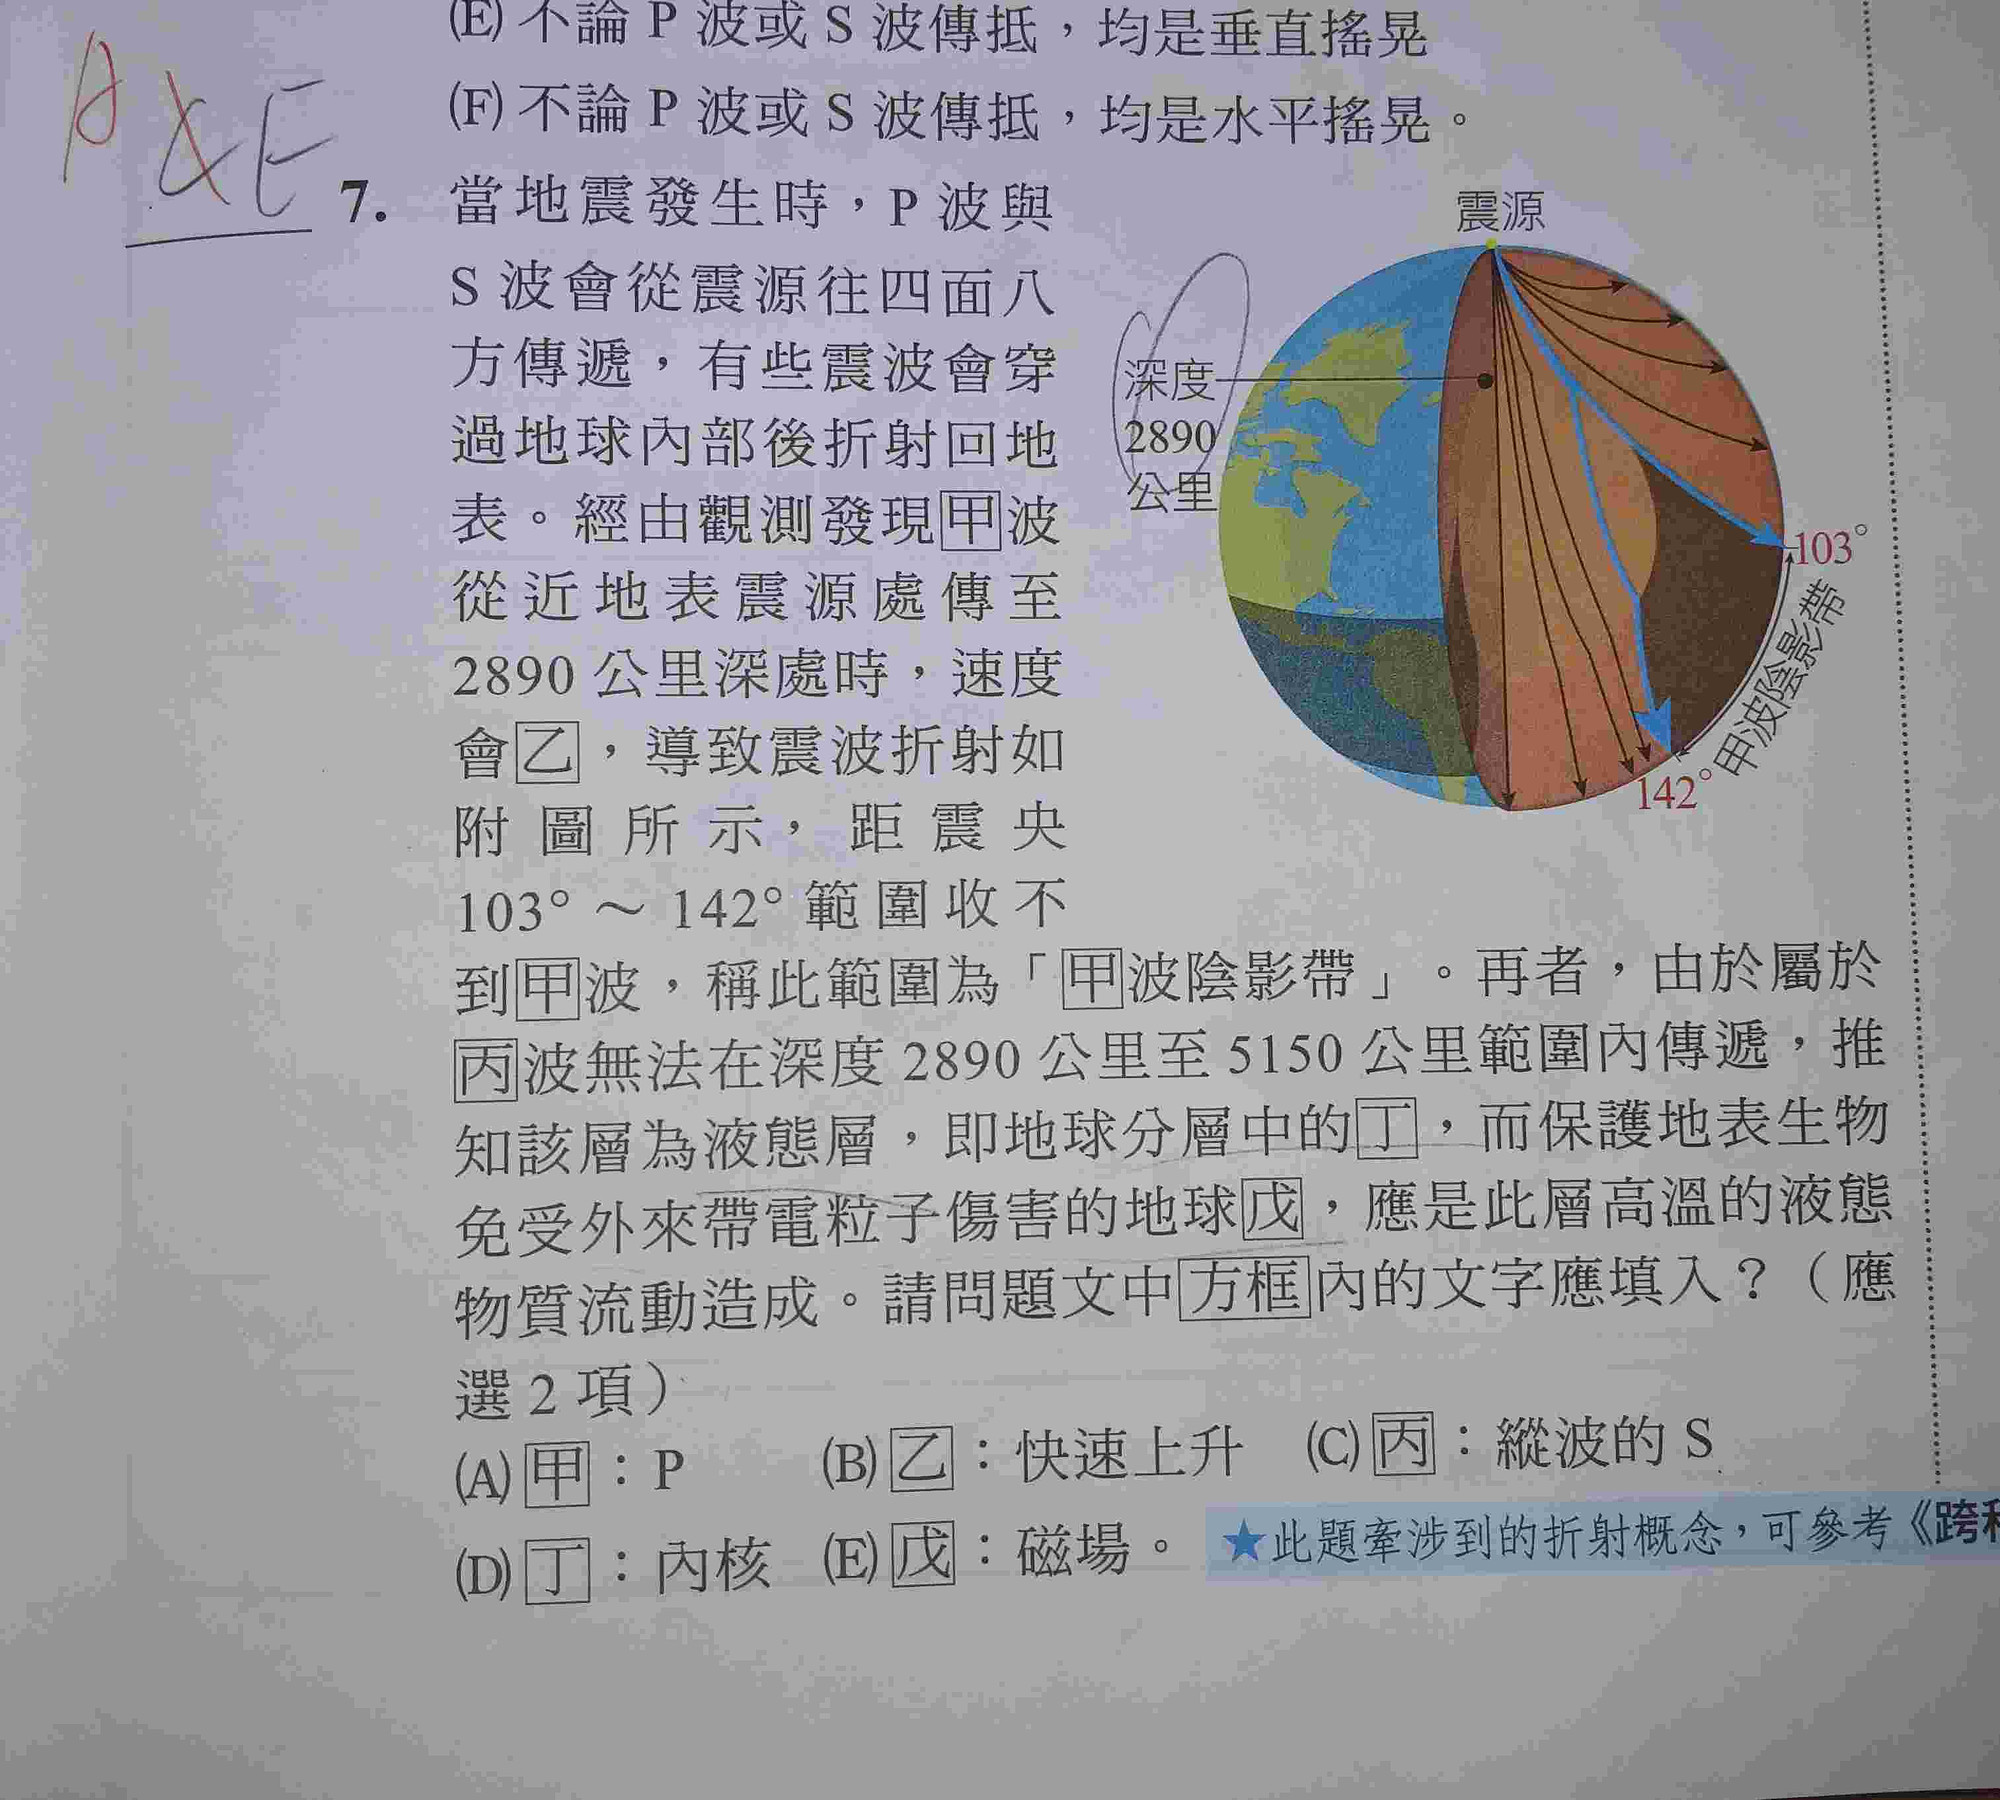 (E) 不論 P 波或 S 波傳抵，均是垂直搖晃
(F) 不論 P 波或 S 波傳抵，均是水平搖晃。
A E
7. 當地震發生時，P 波與
S 波會從震源往四面八
方傳遞，有些震波會穿
過地球內部後折射回地
表。經由觀測發現甲波
從近地表震源處傳至
2890 公里深處時，速度
會乙，導致震波折射如
附圖所示，距震央
103°～142° 範圍收不
到甲波，稱此範圍為「甲波陰影帶」。再者，由於屬於
丙波無法在深度 2890 公里至 5150 公里範圍內傳遞，推
知該層為液態層，即地球分層中的丁，而保護地表生物
免受外來帶電粒子傷害的地球戊，應是此層高溫的液態
物質流動造成。請問題文中方框內的文字應填入？（應
選 2 項）
震源
深度
2890
公里
103°
甲波陰影帶
142°
(A) 甲：P (B) 乙：快速上升 (C) 丙：縱波的 S
(D) 丁：內核 (E) 戊：磁場。
★此題牽涉到的折射概念，可參考《跨